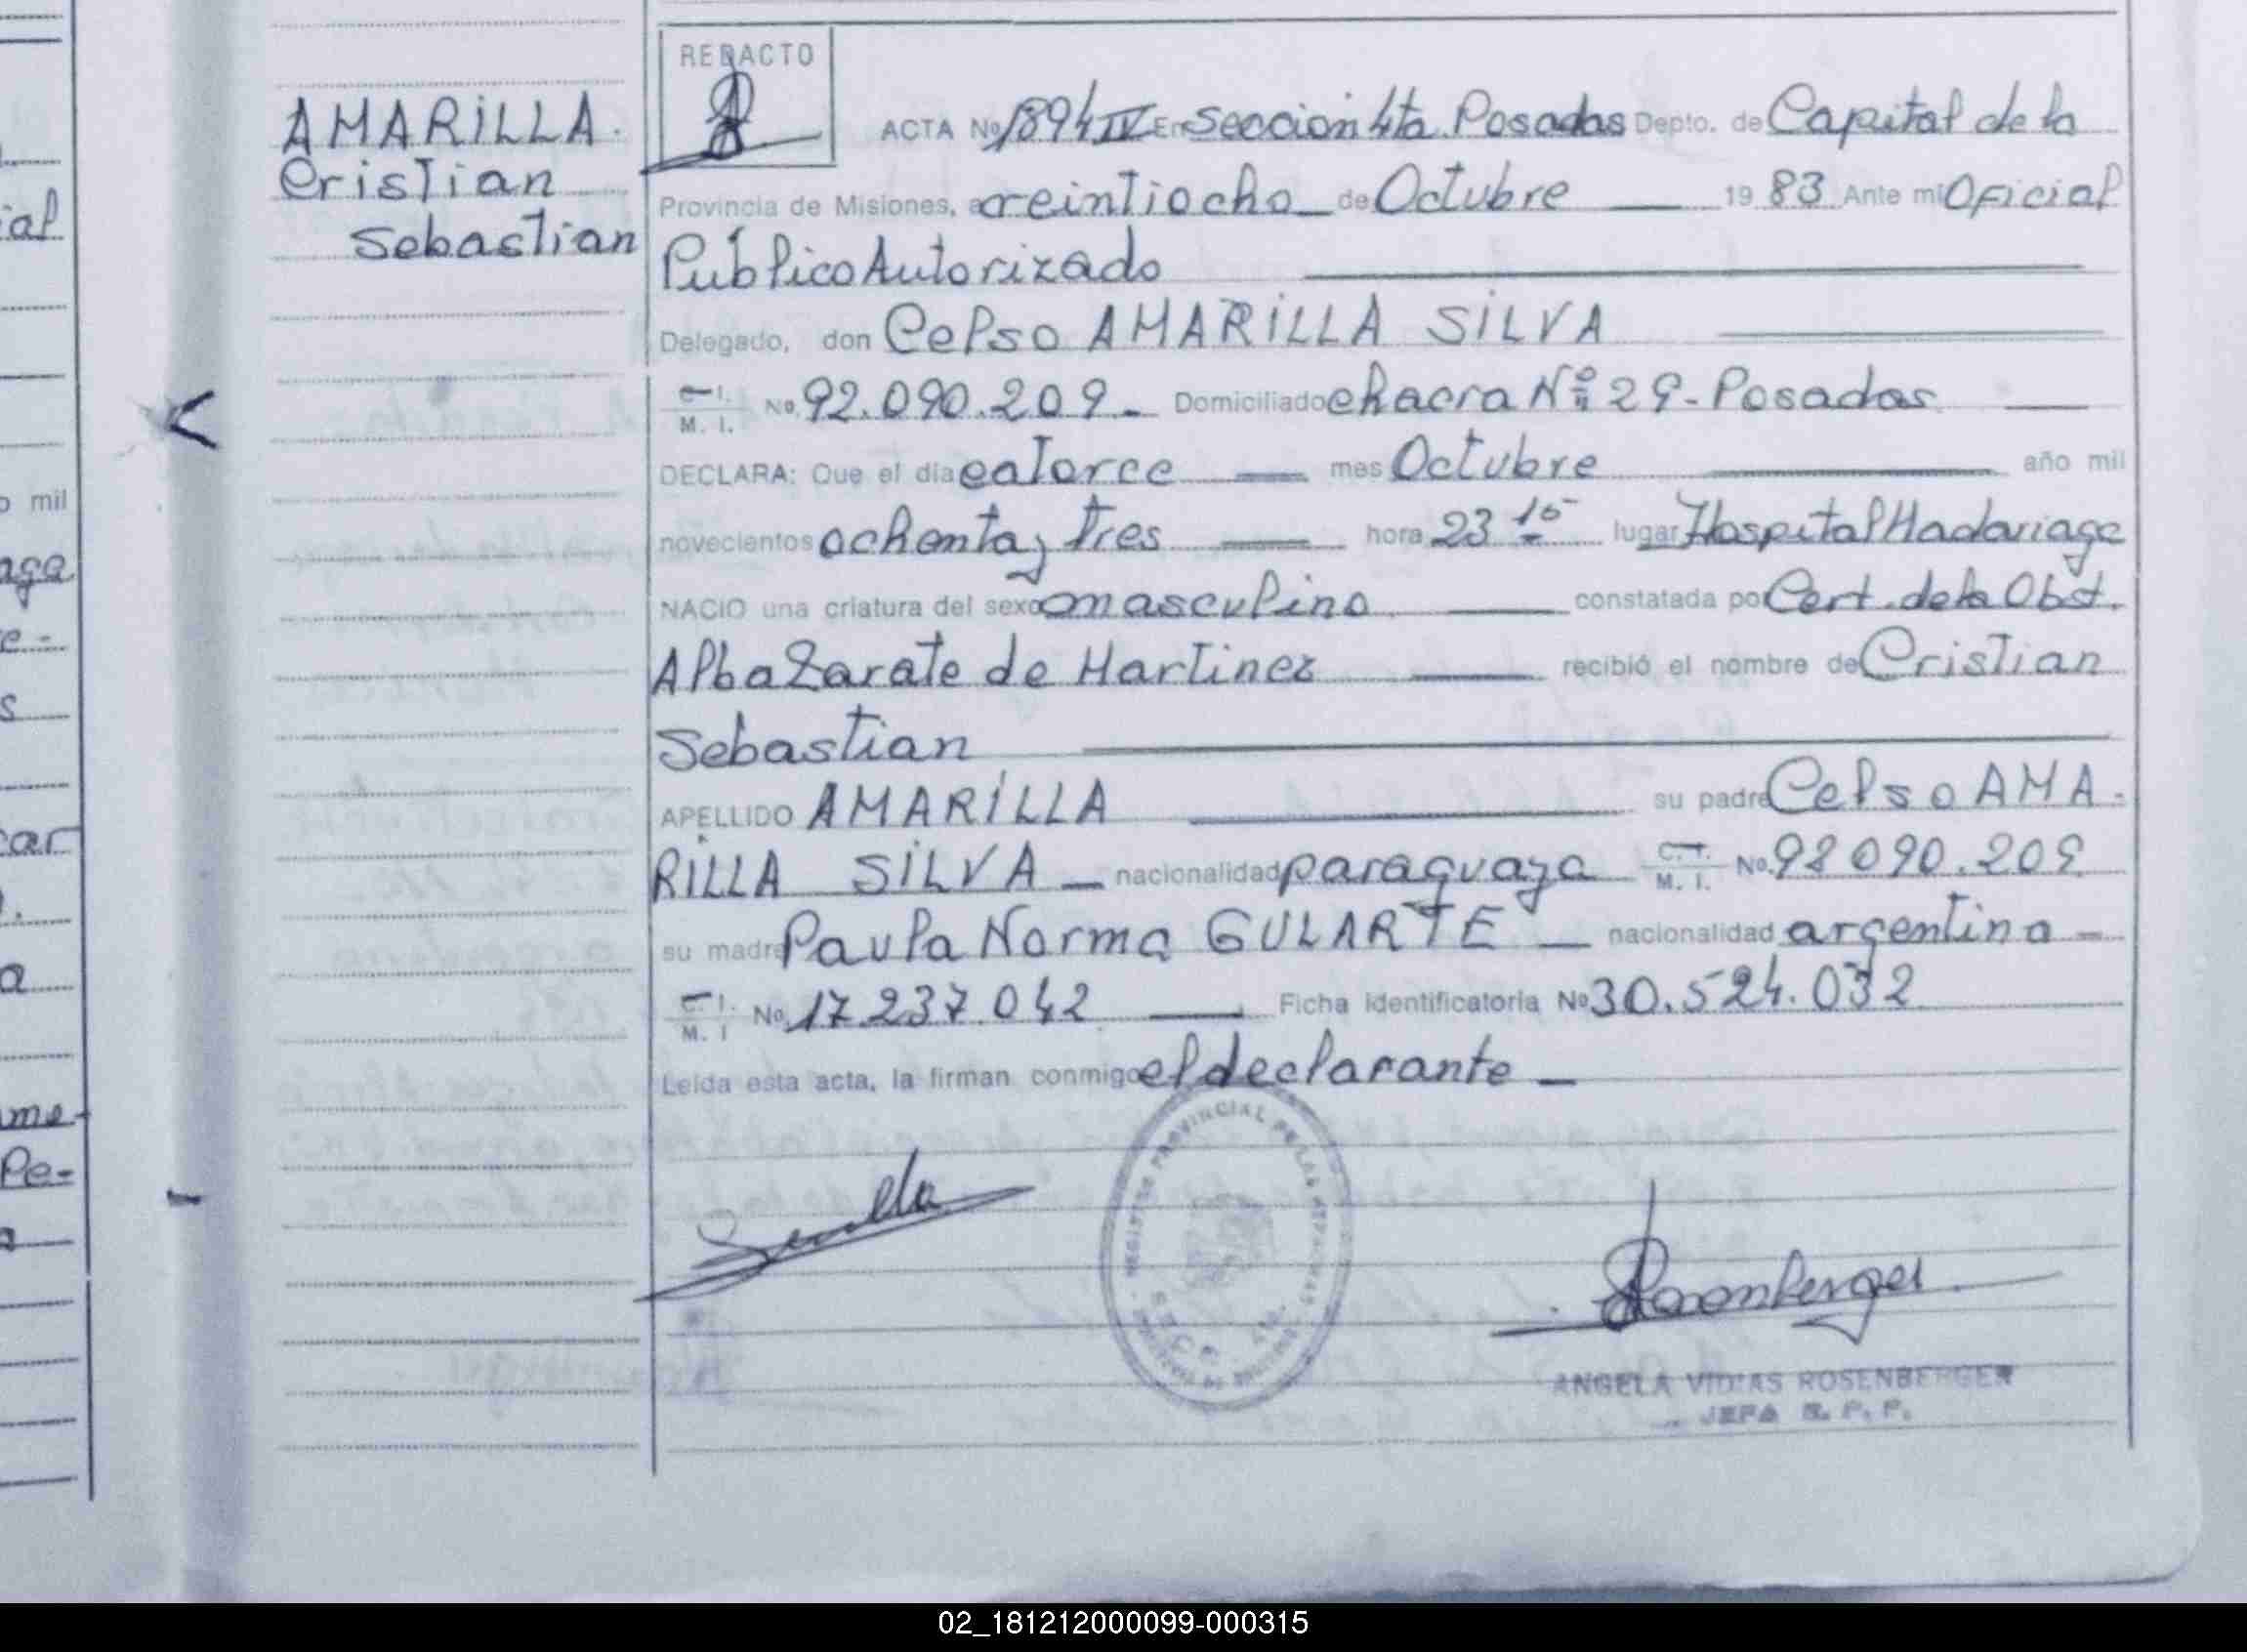 REDACTO
AMARILLA.
Cristian
Sebastian
ACTA No 1894 IV En Seccion 4ta. Posadas Depto. de Capital de la
Provincia de Misiones, a veintiocho de Octubre 19 83 Ante mi Oficial
Público Autorizado
Delegado, don Celso AMARILLA SILVA
C.I.
M. I. No. 92.090.209.- Domiciliado chacra Nº 29-Posadas
DECLARA: Que el día catorce mes Octubre año mil
novecientos ochenta y tres hora 23 10 lugar Hospital Madariaga
NACIO una criatura del sexo masculino constatada por Cert. de la Obst.
Alba Zarate de Martinez recibió el nombre de Cristian
Sebastian
APELLIDO AMARILLA su padre Celso AMA-
RILLA SILVA nacionalidad paraguaya C.I. M. I. No. 92 090.209
su madre Paula Norma GULARTE nacionalidad argentina
C.I.
M. I No. 17.237.042 Ficha identificatoria No 30.524.032
Leída esta acta, la firman conmigo el declarante
REGISTRO PROVINCIAL DE LAS PERSONAS
Rosenberger
ANGELA VIDIAS ROSENBERGER
JEFA R. P. P.
ial
o mil
aga
e-
s
car
a
me-
Pe-
a
02_181212000099-000315